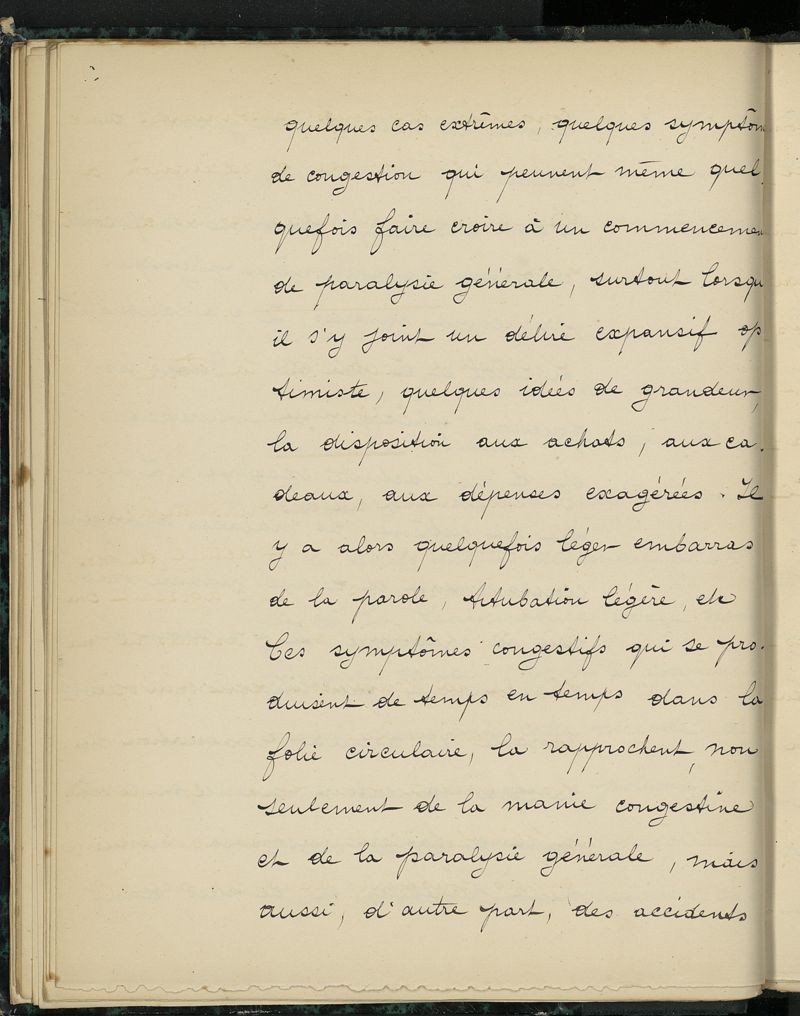 quelques cas extrêmes, quelques symptôm
de congestion qui peuvent même quel
quefois faire croire à un commencemen
de paralysie générale, surtout lorsqu
il s'y joint un délire expansif op
timiste, quelques idées de grandeur,
la disposition aux achats, aux ca-
deaux, aux dépenses exagérées. Il
y a alors quelquefois léger embarras
de la parole, titubation légère, etc
Ces symptômes congestifs qui se pro-
duisent de temps en temps dans la
folie circulaire, la rapprochent, non
seulement de la manie congestive
et de la paralysie générale, mais
aussi, d'autre part, des accidents